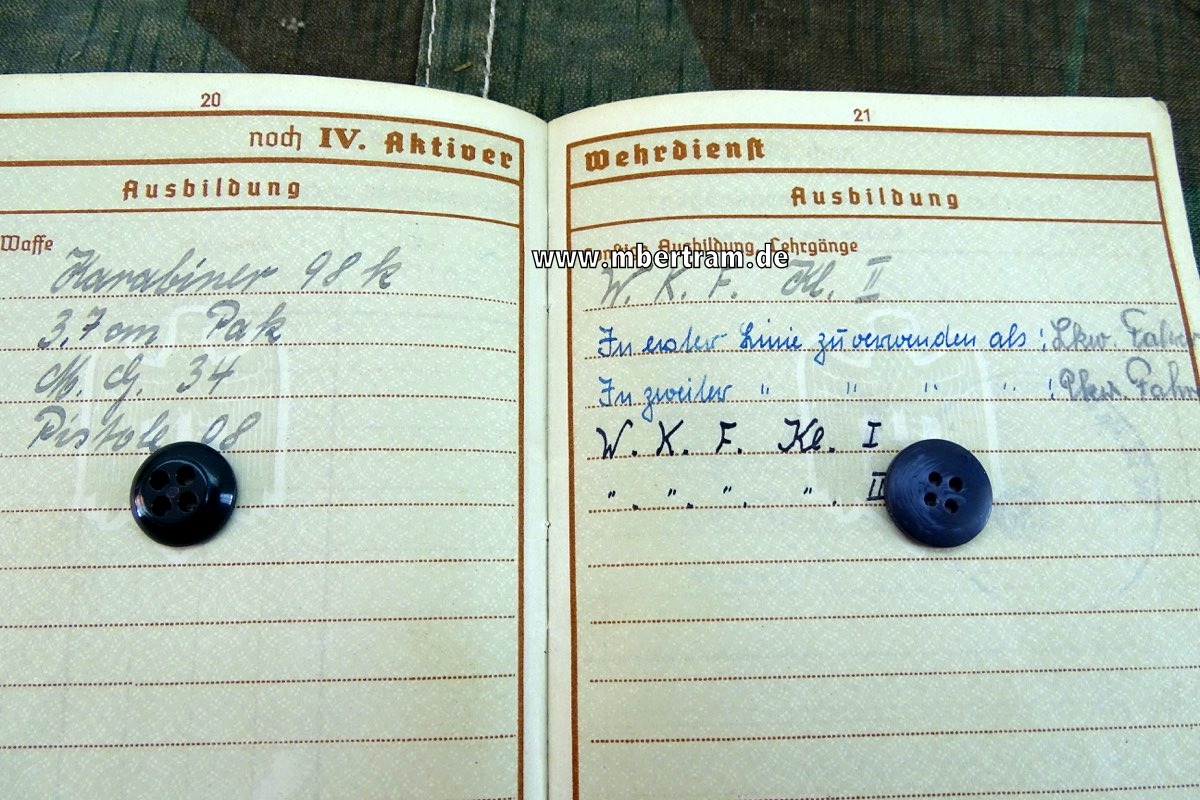 20
noch IV. Aktiver
Ausbildung
Waffe
Karabiner 98 k
3,7 cm Pak
M. G. 34
Pistole 08
21
Wehrdienst
Ausbildung
Ausbildung, Lehrgänge
www.mbertram.de
W. K. F. Kl. II
In erster Linie zu verwenden als : Lkw. Fahrer
In zweiter " " " " : Pkw. Fahr
W. K. F. Kl. I
" . " . " . " . II